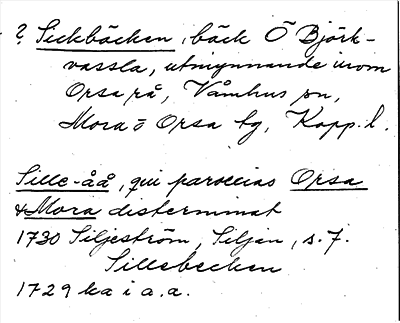 ? Sickbäcken, bäck Ö Björk-
vassla, utmynnande inom
Orsa rå, Våmhus sn,
Mora o Orsa tg, Kopp. l.
Sille-åå, qui paroecias Orsa
& Mora disterminat
1730 Siljeström, Siljan, s. 7.
Sillebecken
1729 ka i a.a.